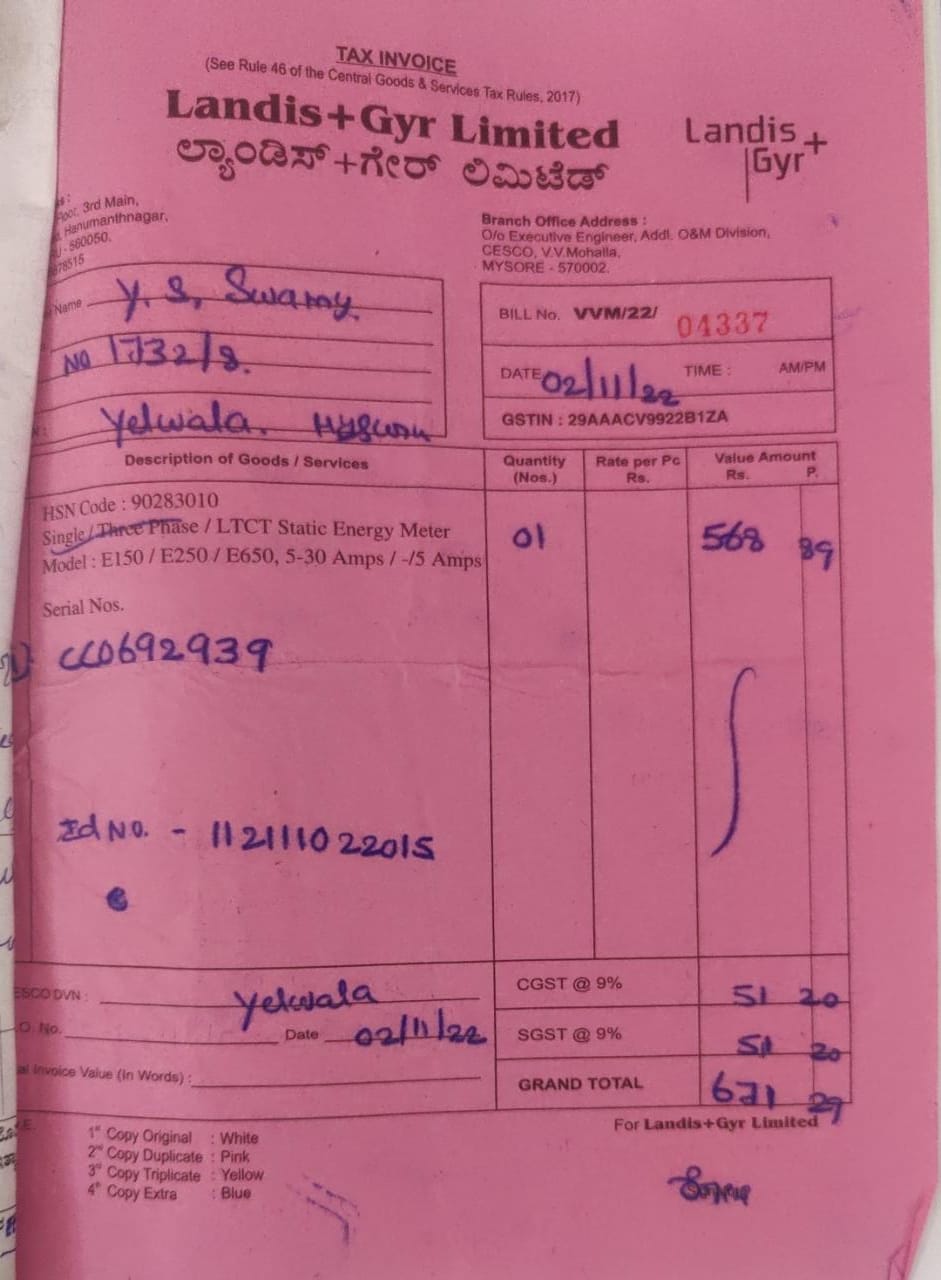 TAX INVOICE
(See Rule 46 of the Central Goods & Services Tax Rules, 2017)
Landis+Gyr Limited
ಲ್ಯಾಂಡಿಸ್+ಗೇರ್ ಲಿಮಿಟೆಡ್
Landis
Gyr+
3rd Main,
Hanumanthnagar,
- 560050.
78515
Branch Office Address :
O/o Executive Engineer, Addl. O&M Division,
CESCO, V.V.Mohalla,
MYSORE - 570002.
Name Y. S, Swamy
No 1732/8.
Yelwala. Mysuru
BILL No. VVM/22/ 04337
DATE 02/11/22 TIME : AM/PM
GSTIN : 29AAACV9922B1ZA
Description of Goods / Services Quantity (Nos.) Rate per Pc Rs. Value Amount Rs. P.
HSN Code : 90283010
Single / Three Phase / LTCT Static Energy Meter 01 568 89
Model : E150 / E250 / E650, 5-30 Amps / -/5 Amps
Serial Nos.
CC0692939
Id No. - 112111022015
ESCO DVN : Yelwala CGST @ 9% 51 20
.O. No. Date 02/11/22 SGST @ 9% 51 20
al Invoice Value (In Words) : GRAND TOTAL 671 29
For Landis+Gyr Limited
1st Copy Original : White
2nd Copy Duplicate : Pink
3rd Copy Triplicate : Yellow
4th Copy Extra : Blue